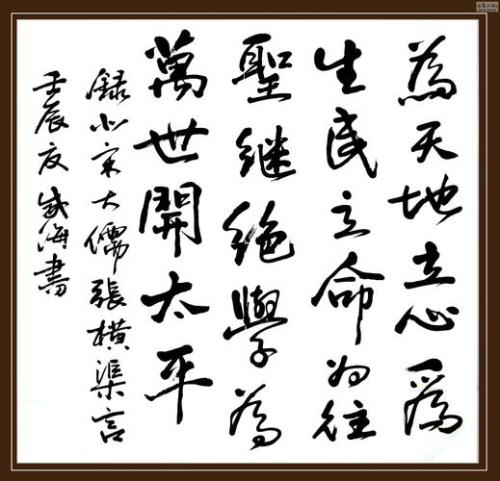 為天地立心爲
生民立命为往
聖继绝學為
萬世開太平
録北宋大儒張横渠言
壬辰夏海書